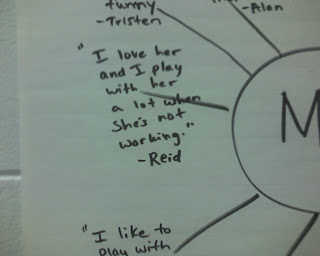 funny
-Tristen
-Alan
"I love her
and I play
with her
a lot when
She's not
working."
-Reid
M
"I like to
play with